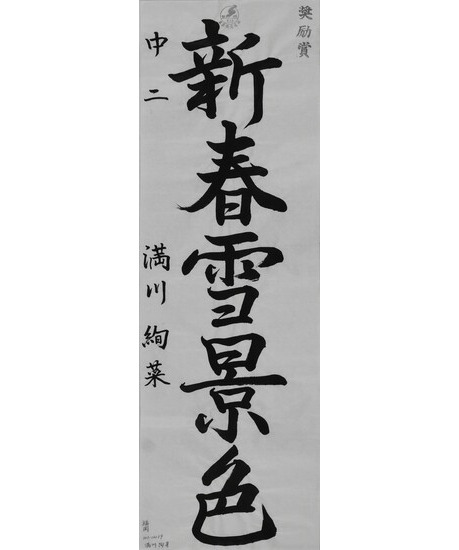 奨励賞
新春雪景色
中二
満川絢菜
福岡